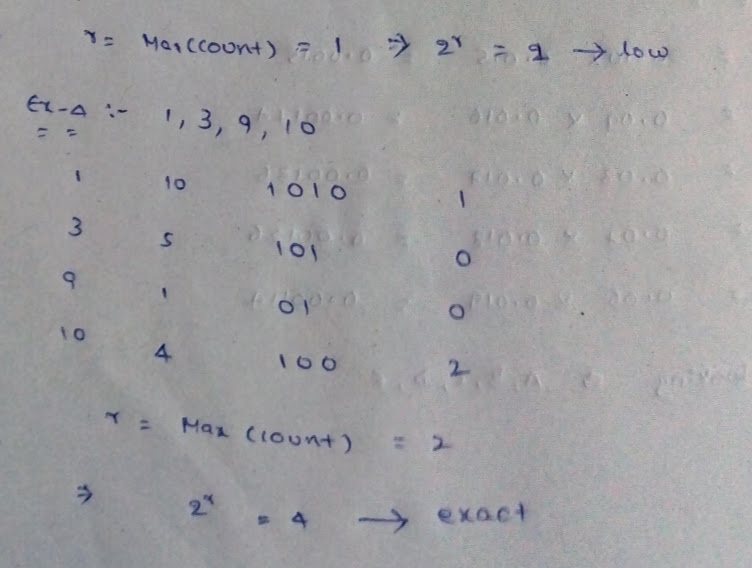 r = Max(count) = 1 ⇒ 2^r = 2 → low
Ex-4 :- 1, 3, 9, 10
1 10 1010 1
3 5 101 0
9 1 01 0
10 4 100 2
r = Max (count) = 2
⇒ 2^r = 4 → exact